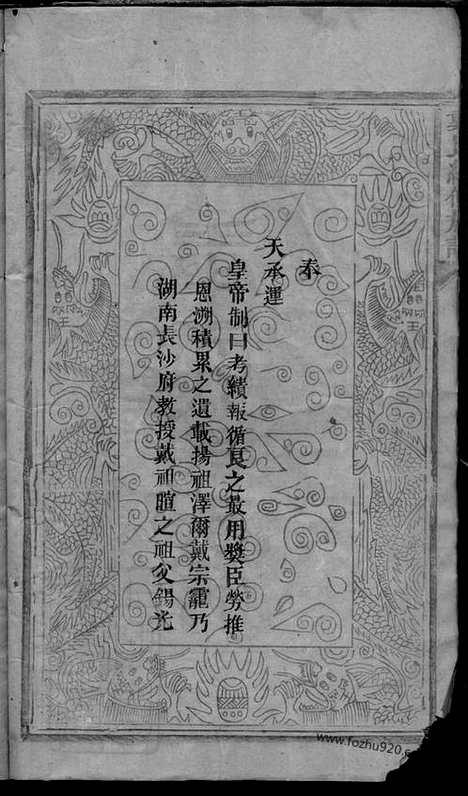 奉
天承運
皇帝制曰考績報循良之最用奬臣勞推
恩溯積累之遺載揚祖澤爾戴宗靇乃
湖南長沙府教授戴祖暄之祖父錫光
www.fozhu920.c